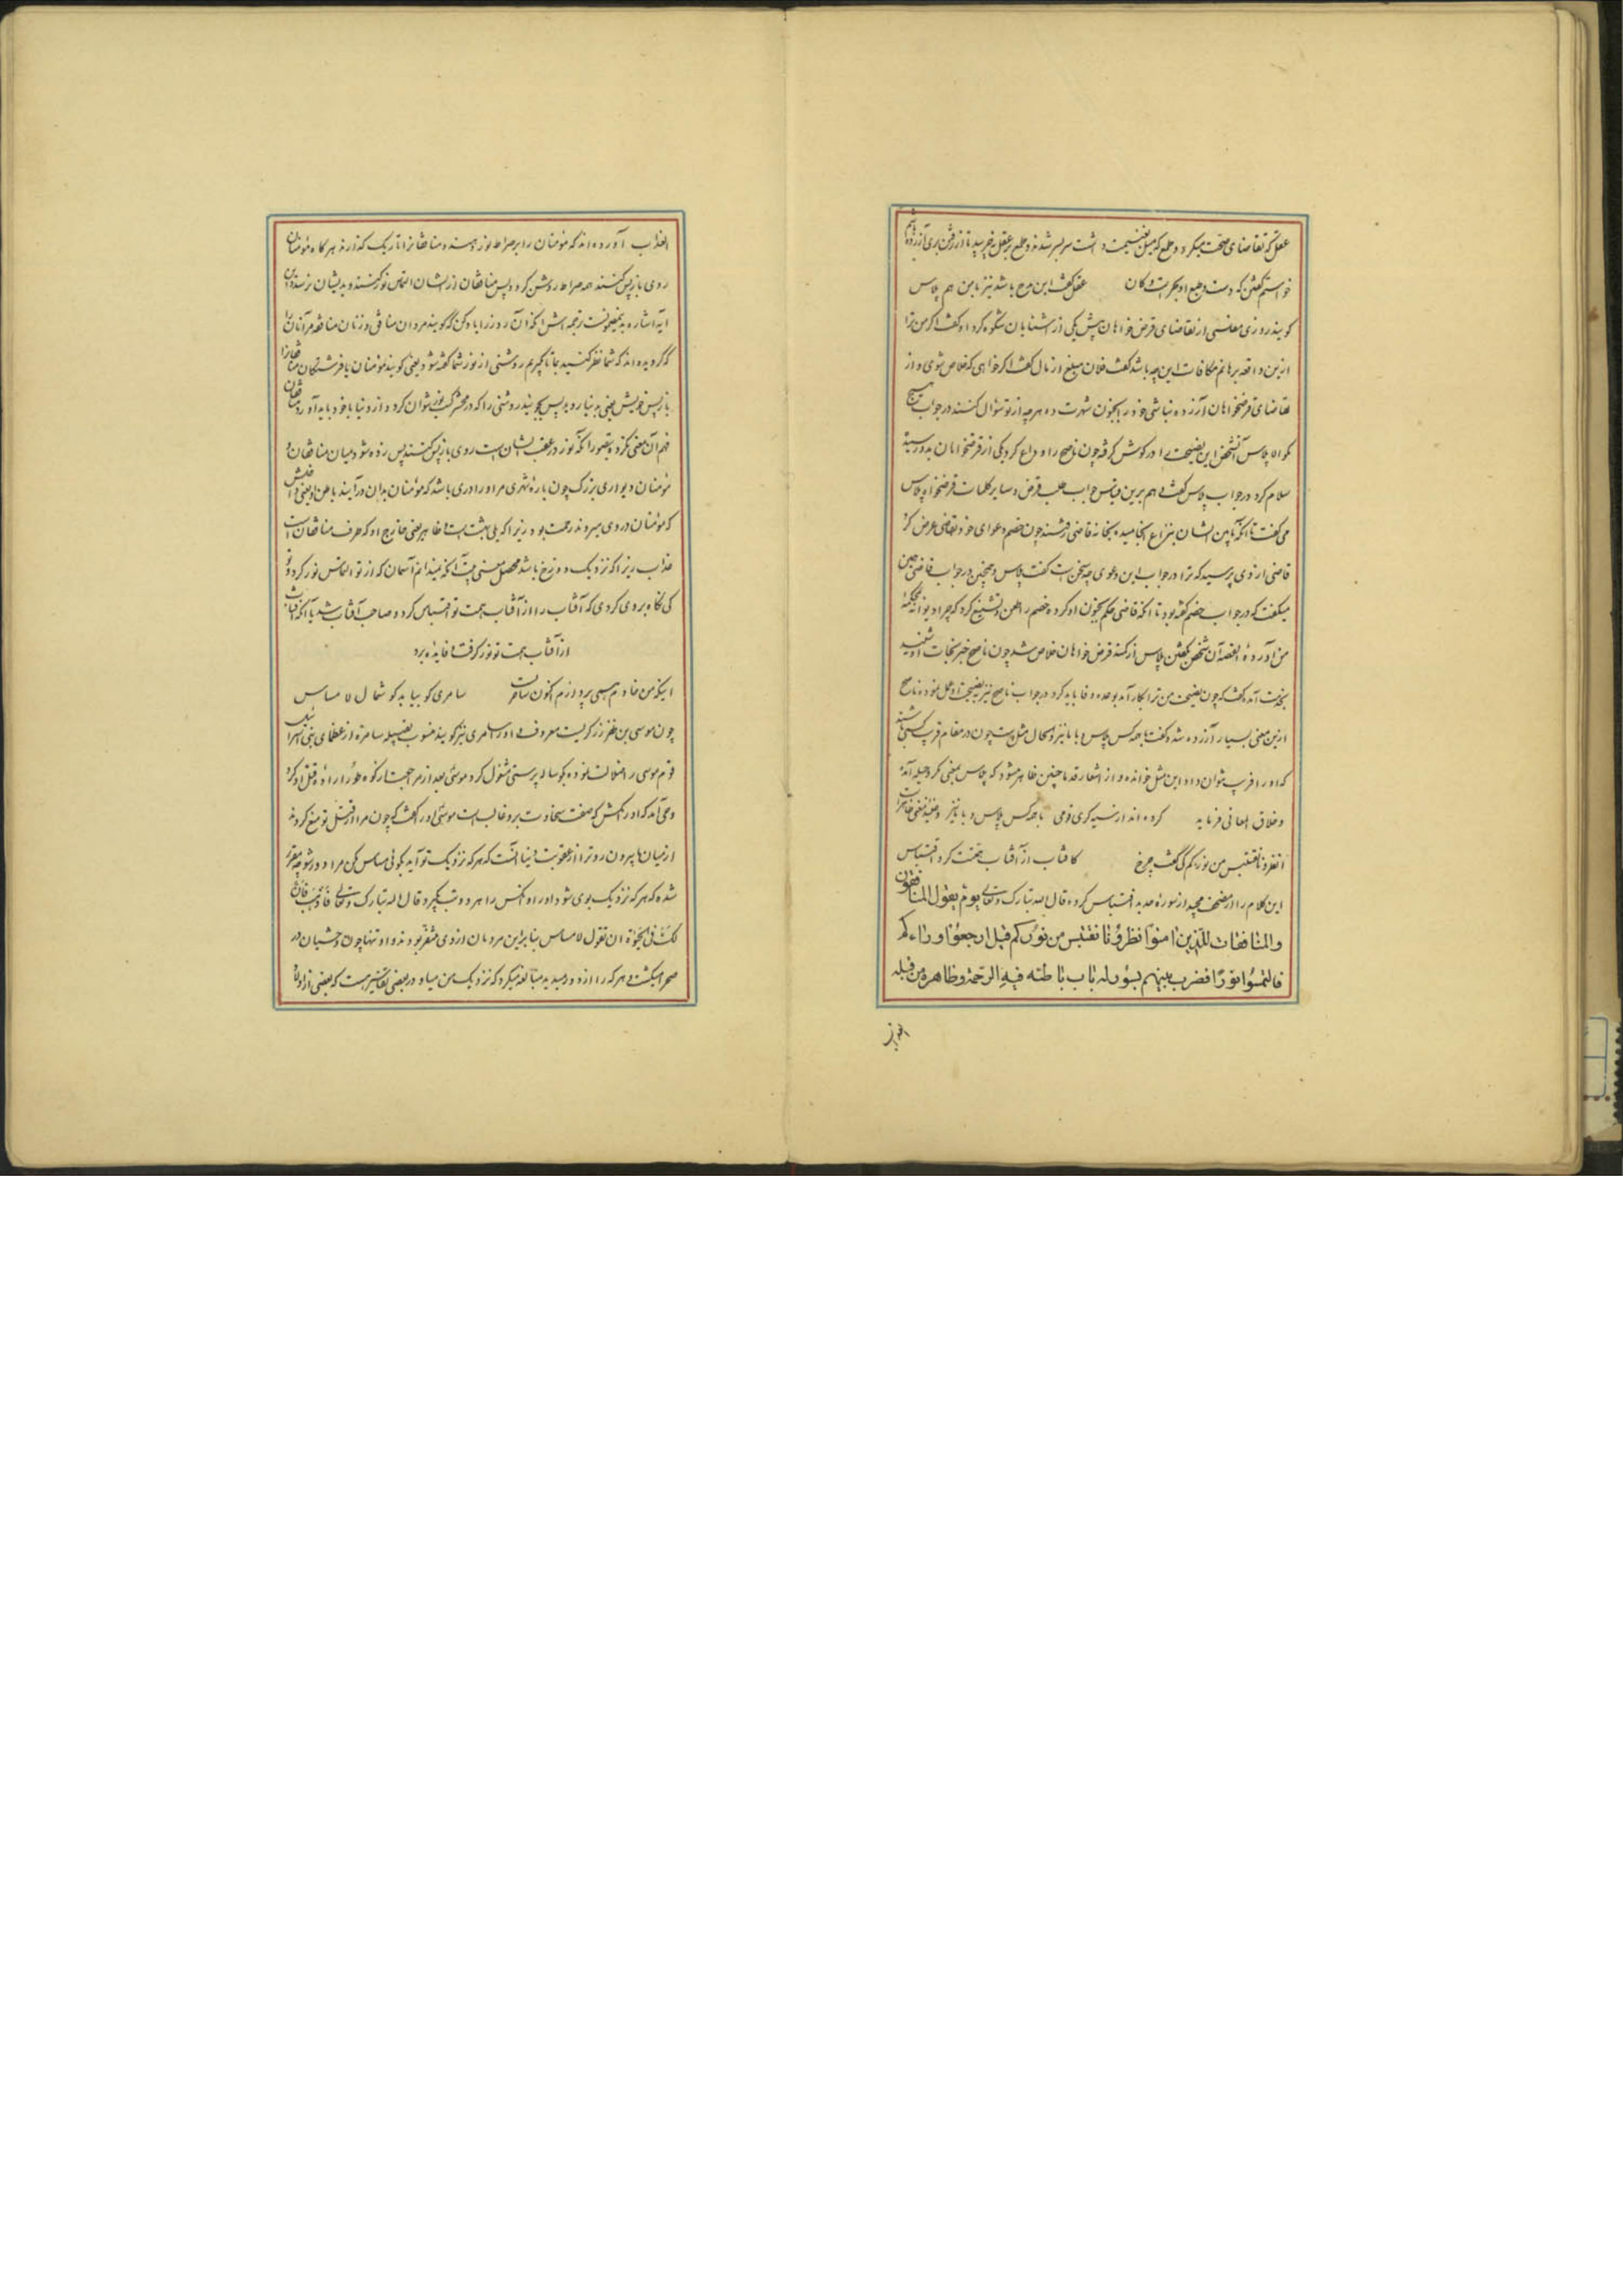 عقل که تقاضای صحبت میکرد و طمع که میل بغنیمت داشت سر بسر شدند و طمع بر عقل چربید تا از رفتن بری آزرده
خواستم گفتن که دست و طبع او بحرست و کان عقل گفت این مدح باشد نیز با من هم پلاس
گویند روزی مفلسی از تقاضای قرض خواهان پیش یکی از آشنایان شکوه کرد او گفت اگر من ترا
ازین واقعه برهانم مکافات این چه باشد گفت فلان مبلغ از مال گفت اگر خواهی که خلاص شوی و از
تقاضای قرضخواهان آزرده نباشی خود را بجنون شهرت ده هر چه از تو سؤال کنند در جواب هیچ
مگو الا پلاس آنشخص این نصیحت را در گوش گرفته چون ناصح را وداع کرد یکی از قرضخواهان بدو رسید
سلام کرد در جواب پلاس گفت و هم برین قیاس جواب طلب قرض و سایر کلمات قرضخواه پلاس
می گفت تا آنکه مابین ایشان بنزاع انجامید و بخانه قاضی رفتند چون خصم دعوای خود بقاضی عرض کرد
قاضی از وی پرسید که ترا در جواب این دعوی چه سخن است گفت پلاس و همچنین در جواب قاضی همین
میگفت که در جواب خصم گفته بود تا آنکه قاضی حکم بجنون او کرده خصم را طعن و تشنیع کرد که چرا دیوانه بمحکمه
من آوردهٔ القصه آن شخص بگفتن پلاس از کنه قرض خواهان خلاص شد چون ناصح خبر نجات او شنید
بخدمت آمده گفت که چون نصیحت من ترا بکار آمد بوعده وفا باید کرد در جواب ناصح نیز بنصیحت او عمل نموده ناصح
ازین معنی بسیار آزرده شد و گفت با همه کس پلاس با ما نیز و الحال مثل است چون در مقام فریب کسی باشند
که او را فریب نتوان داد این مثل خوانده و از اشعار قدما چنین ظاهر میشود که پلاس بمعنی مکر و حیله آمده
و خلاق المعانی فرماید کرده اند از سیه گری قومی با همه کس پلاس و با ما نیز
انظرونا نقتبس من نورکم کی گفت چرخ کافتاب از آفتاب همتت کرد اقتباس
این کلام را از مصحف مجید از سوره حدید اقتباس کرده قال الله تبارک و تعالی یوم یقول المنافقون
والمنافقات للذین امنوا انظرونا نقتبس من نورکم قیل ارجعوا وراءکم
فالتمسوا نورا فضرب بینهم بسور له باب باطنه فیه الرحمة و ظاهره من قبله
العذاب
العذاب آورده اند که مؤمنان را بر صراط نور دهند و منافقانرا تاریک گذارند هرگاه مؤمنان
روی بازپس کنند همه صراط روشن گردد پس منافقان از ایشان التماس نور کنند و بدیشان نرسد و این
ایه اشاره بهمین معنیست ترجمه اش آنکه آن روز را یاد کن که گویند مردان منافق و زنان منافقه مر آنانرا
که گرویده اند که شما نظر کنید بما تا گیریم روشنی از نور شما گفته شود یعنی گویند مؤمنان یا فرشتگان منافقانرا
بازپس خویش یعنی بدنیا روید پس بجویند روشنی را که در محشر کسب نور نتوان کرد و از دنیا با خود باید آورد منافقان
فهم آن معنی نکرده بتصور آنکه نور در عقب ایشان است روی بازپس کنند پس زده شود میان منافقان و
مؤمنان دیواری بزرگ چون باره شهری مر او را دری باشد که مؤمنان بدان درآیند باطن او یعنی داخلش
که مؤمنان در وی میروند رحمت بود زیرا که پلی بهشت است و ظاهر یعنی خارج او که طرف منافقان است
عذاب زیرا که نزدیک دوزخ باشد محصل معنی بیت آنکه نمیدانم آسمان که از تو التماس نور کرد و تو
کی نگاه بر وی کردی که آفتاب را از آفتاب همت تو اقتباس کرد و صاحب آفتاب شد یا آنکه آفتاب
از آفتاب همت تو نور گرفت و فایده برد
اینکه من خادم همی پردازم اکنون ساحریست سامری کو بیاید گو شمال لامساس
چون موسی بن ظفر زرگریست معروف و او را سامری نیز گویند منسوب بقبیله سامره از عظمای بنی اسرائیل
قوم موسی را اضلال نموده بگوساله پرستی مشغول کرد موسی بعد از مراجعت از کوه طور اراده قتل او کرد
وحی آمد که او را مکش که صفت سخاوت برو غالب است موسی او را گفت که چون مرا از قتل تو منع کردند
از میان ما بیرون رو ترا از عقوبت دنیا آنست که هر که نزدیک تو آید بگوئی مساس مکن مرا و دور شو چه مقرر
شده که هر که نزدیک بوی شود او را و آنکس را هر دو تب بگیرد قال الله تبارک و تعالی فاذهب فان
لک فی الحیوة ان تقول لامساس بنابراین مردمان از وی متنفر بودند و او تنها چون وحشیان در
صحرا میگشت و هر که را از دور میدید مبالغه میکرد که نزدیک من میا و در بعضی تفاسیر هست که بعضی از اولاد